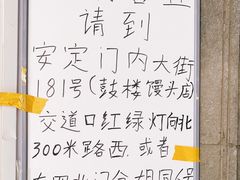 请到
安定门内大街
181号(鼓楼馒头店)
交道口红绿灯向北
300米路西.或者